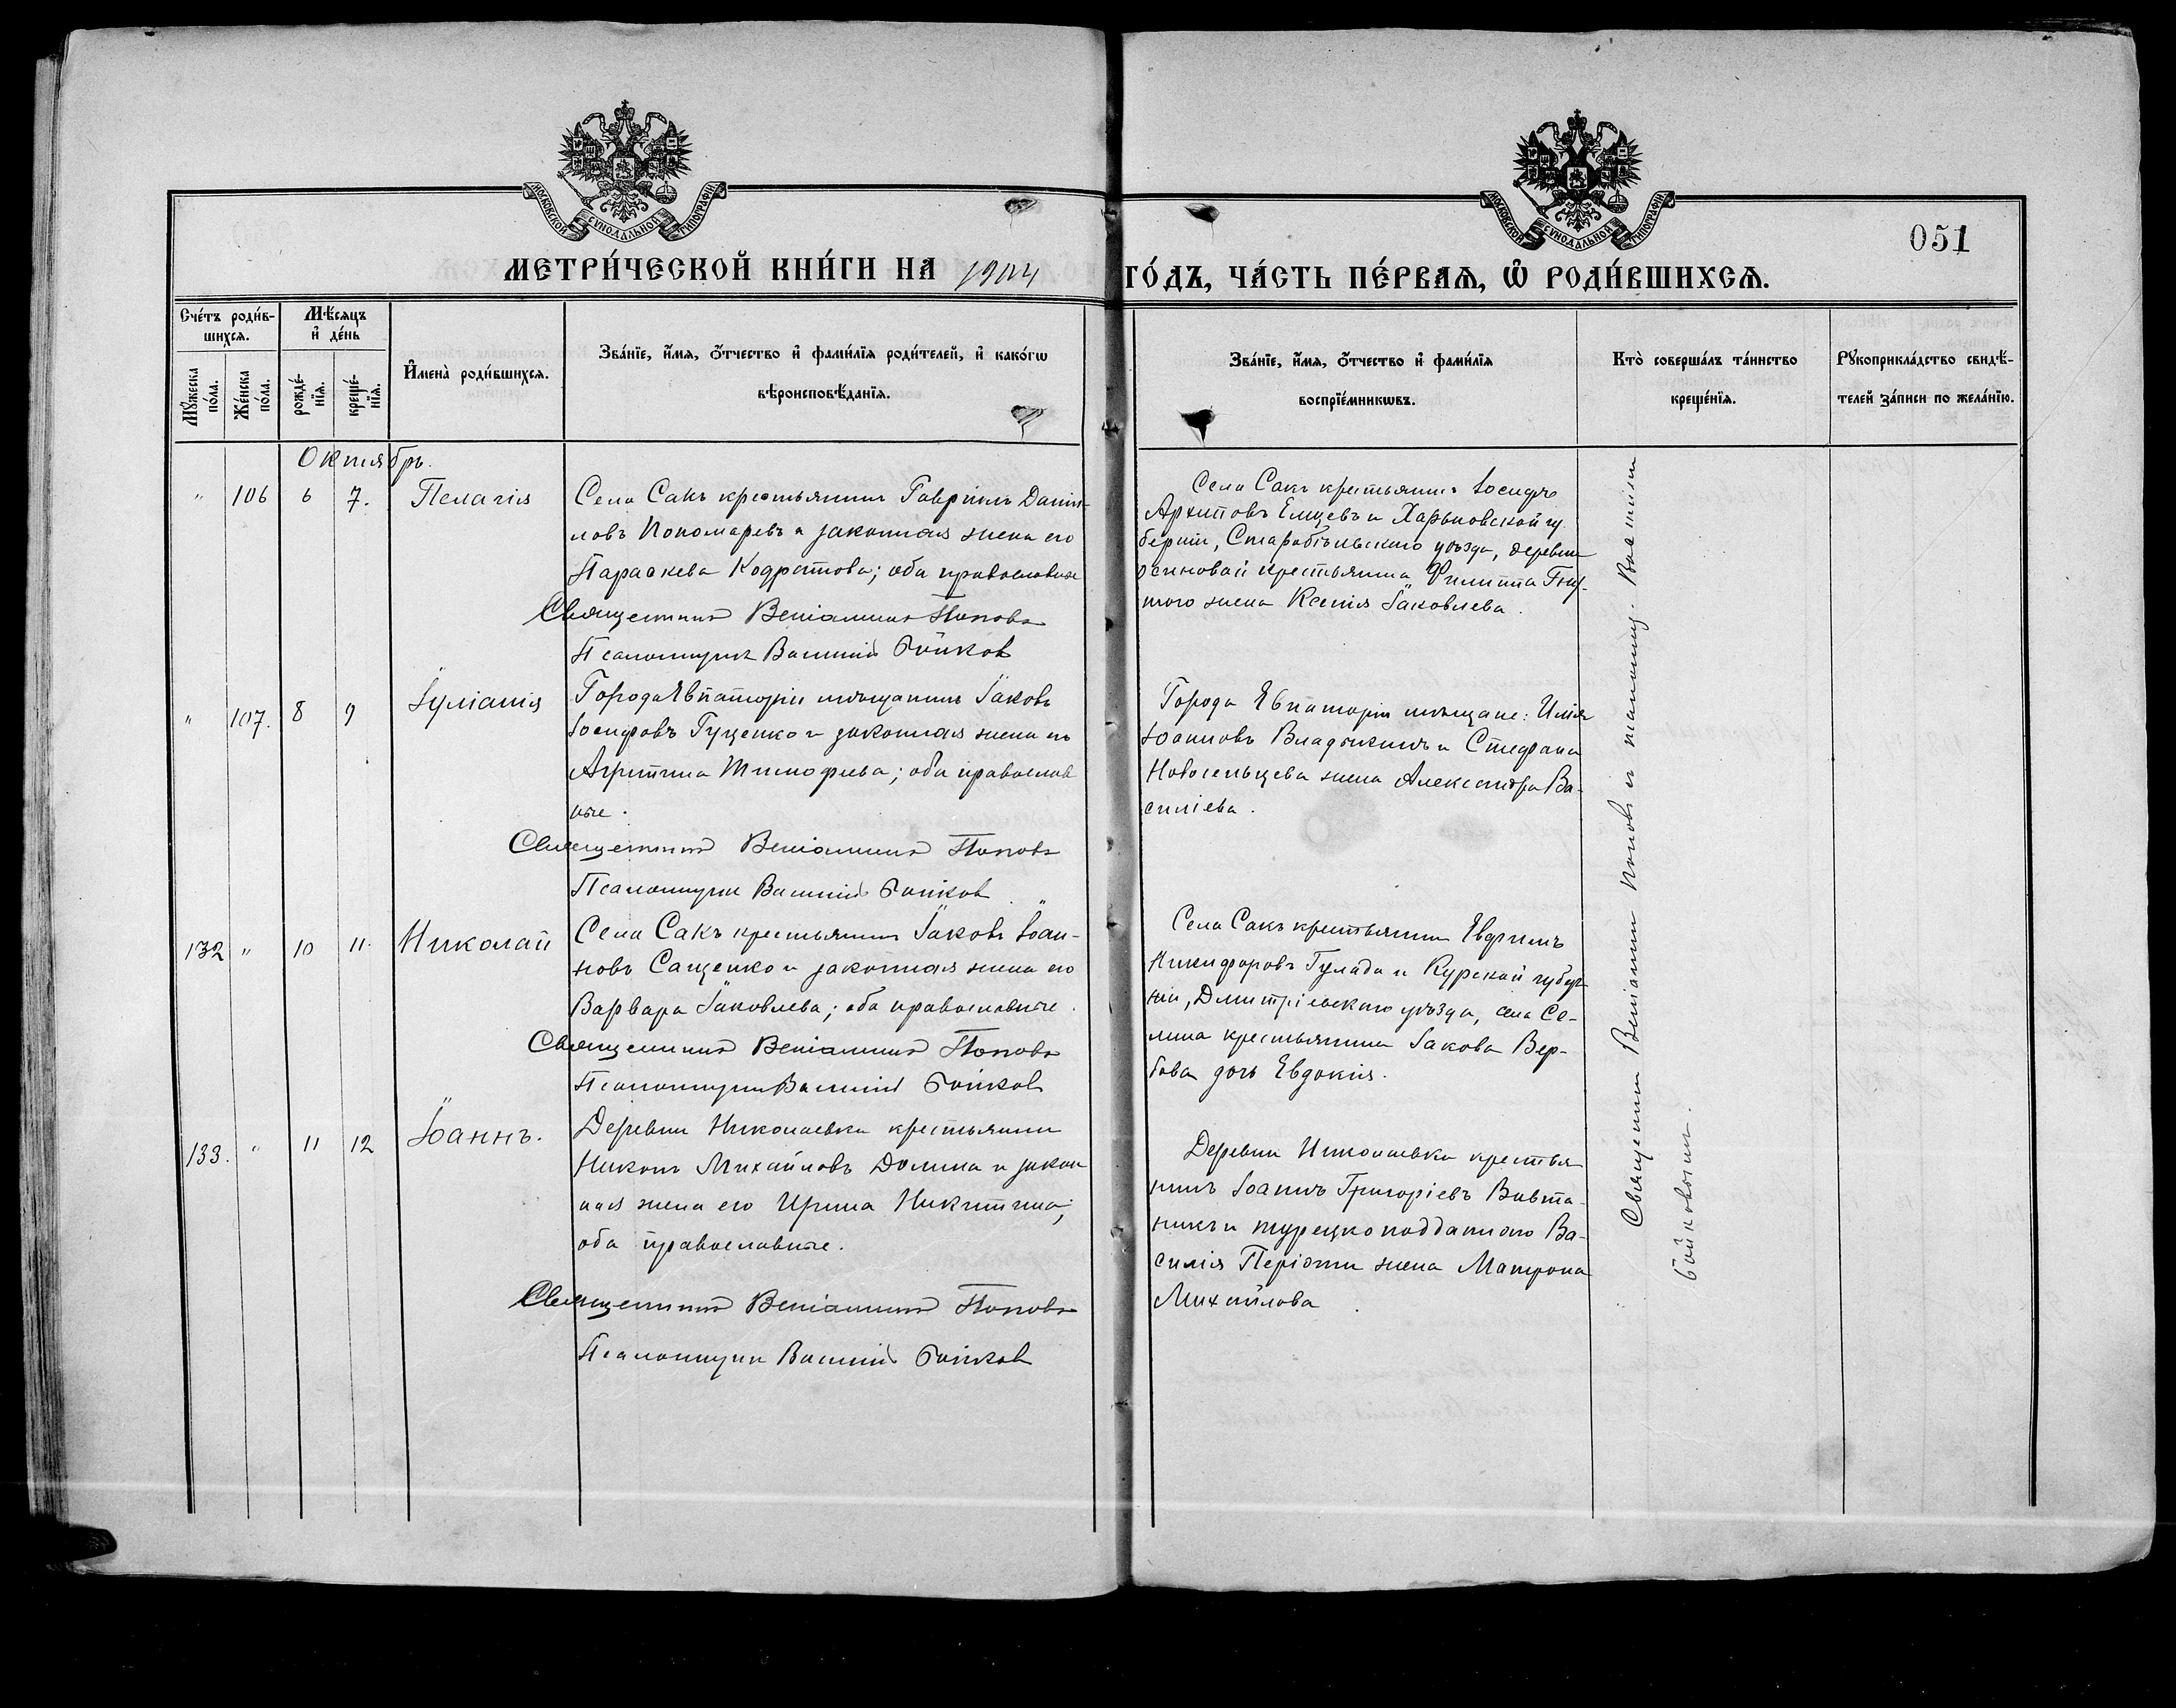 МОСКОВСКОЙ СѴНОДАЛЬНОЙ ТИПОГРАФІИ
МОСКОВСКОЙ СѴНОДАЛЬНОЙ ТИПОГРАФІИ
051
МЕТРИ́ЧЕСКОЙ КНИ́ГИ НА 1904 ГО́ДЪ, ЧА́СТЬ ПЕ́РВАѦ, Ѽ РОДИ́ВШИХСѦ.
Сче́тъ роди́в-
шихсѧ.
Мꙋ́жеска по́ла.
Же́нска по́ла.
Мѣ́сѧцъ
и҆ де́нь
рожде́-
нїѧ.
креще́-
нїѧ.
И҆мена̀ роди́вшихсѧ.
Зва́нїе, и҆́мѧ, ѻ҆́тчество и҆ фами́лїѧ роди́телей, и҆ како́гѡ
вѣроисповѣ́данїѧ.
Зва́нїе, и҆́мѧ, ѻ҆́тчество и҆ фами́лїѧ
воспрїе́мникѡвъ.
Кто̀ соверша́лъ та́инство
креще́нїѧ.
Рꙋкоприкла́дство свидѣ́-
телей за́писи по жела́нїю.
Октябрь.
" 106 6 7. Пелагія
Села Сакъ крестьянинъ Гавріилъ Даніи-
ловъ Пономаревъ и законная жена его
Параскева Кодратова; оба православные
Священникъ Веніаминъ Поповъ
Псаломщикъ Василій Бойков
Села Сакъ крестьянинъ Іосифъ
Архиповъ Емцевъ и Харьковской гу
берніи, Старобѣльскаго уѣзда, деревни
Осиновой крестьянина Филиппа Гну-
таго жена Ксенія Іаковлева.
" 107. 8 9 Іуліанія
Города Евпаторіи мѣщанинъ Іаковъ
Іосифовъ Гуценко и законная жена его
Агриппина Тимофеева; оба православ
ные.
Священникъ Веніаминъ Поповъ
Псаломщикъ Василій Бойков
Города Евпаторіи мѣщане: Илія
Іоанновъ Владыкинъ и Стефана
Новосельцева жена Александра Ва-
силіева.
132 " 10 11. Николай
Села Сакъ крестьянинъ Іаковъ Іоан-
новъ Сащенко и законная жена его
Варвара Іаковлева; оба православные.
Священникъ Веніаминъ Поповъ
Псаломщикъ Василій Бойков
Села Сакъ крестьянинъ Евфимъ
Никифоровъ Гулада и Курской губер
ніи, Дмитріевскаго уѣзда, села Се-
лина крестьянина Іакова Вер-
бова дочь Евдокія.
133. " 11 12 Іоаннъ.
Деревни Николаевки крестьянинъ
Никонъ Михайловъ Долина и закон
ная жена его Ирина Никитина;
оба православные.
Священникъ Веніаминъ Поповъ
Псаломщикъ Василій Бойков
Деревни Николаевки крестья
нинъ Іоаннъ Григоріевъ Вивта-
никъ и турецкоподданнаго Ва-
силія Періоти жена Матрона
Михайлова
Священникъ Веніаминъ Поповъ и псаломщ. Василіемъ
Бойковымъ.